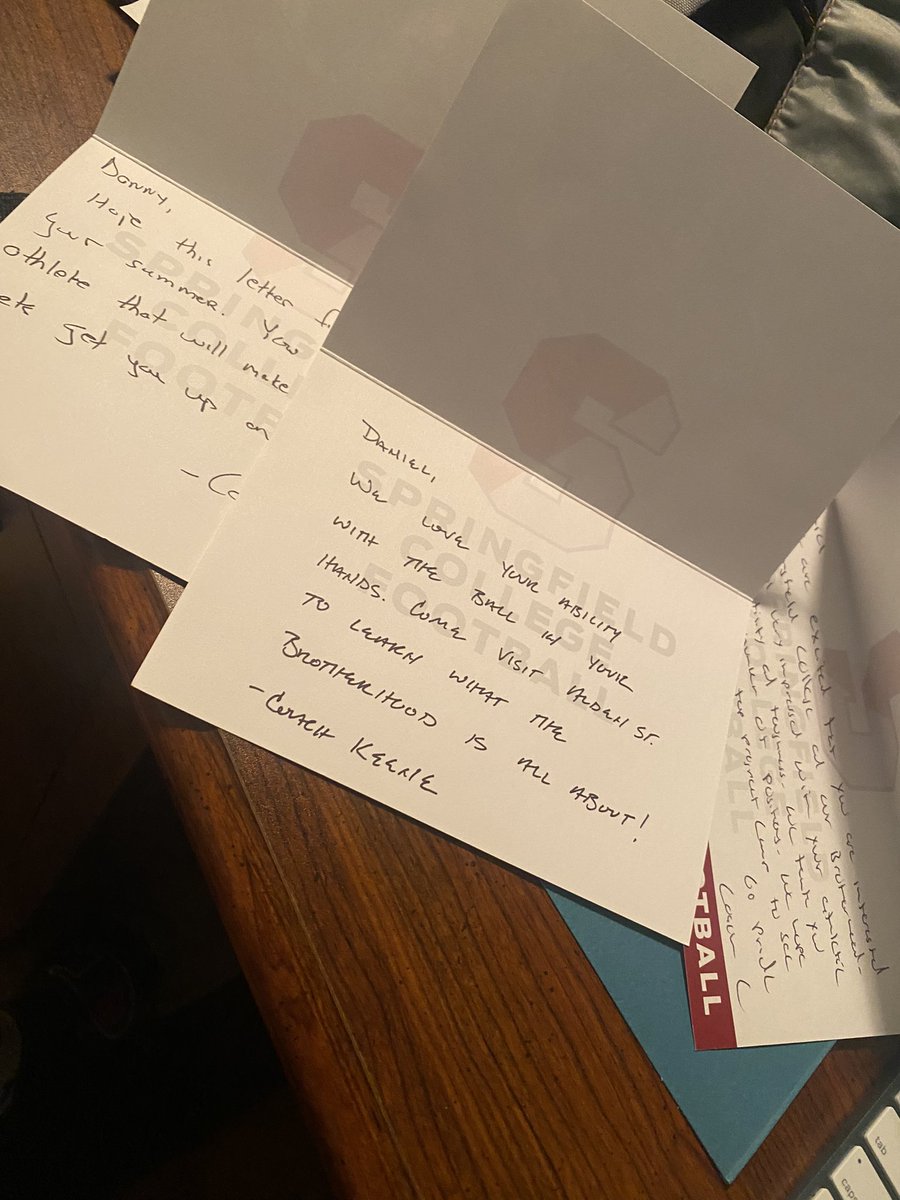 Donny,
Hope this letter
your summer. You
athlete that will make
get you up on
SPRINGFIELD
COLLEGE
FOOTBALL
DANIEL,
WE LOVE YOUR ABILITY
WITH THE BALL IN YOUR
HANDS. COME VISIT ALDEN ST.
TO LEARN WHAT THE
BROTHERHOOD IS ALL ABOUT!
- COACH KEENIE
SPRINGFIELD
COLLEGE
FOOTBALL
are excited that you are interested
college and our Brotherhood.
very impressed with your athletic
and toughness. We think you
a lot of positions. We hope
to see
the program Go Pride
Coach C
TBALL
tab
caps